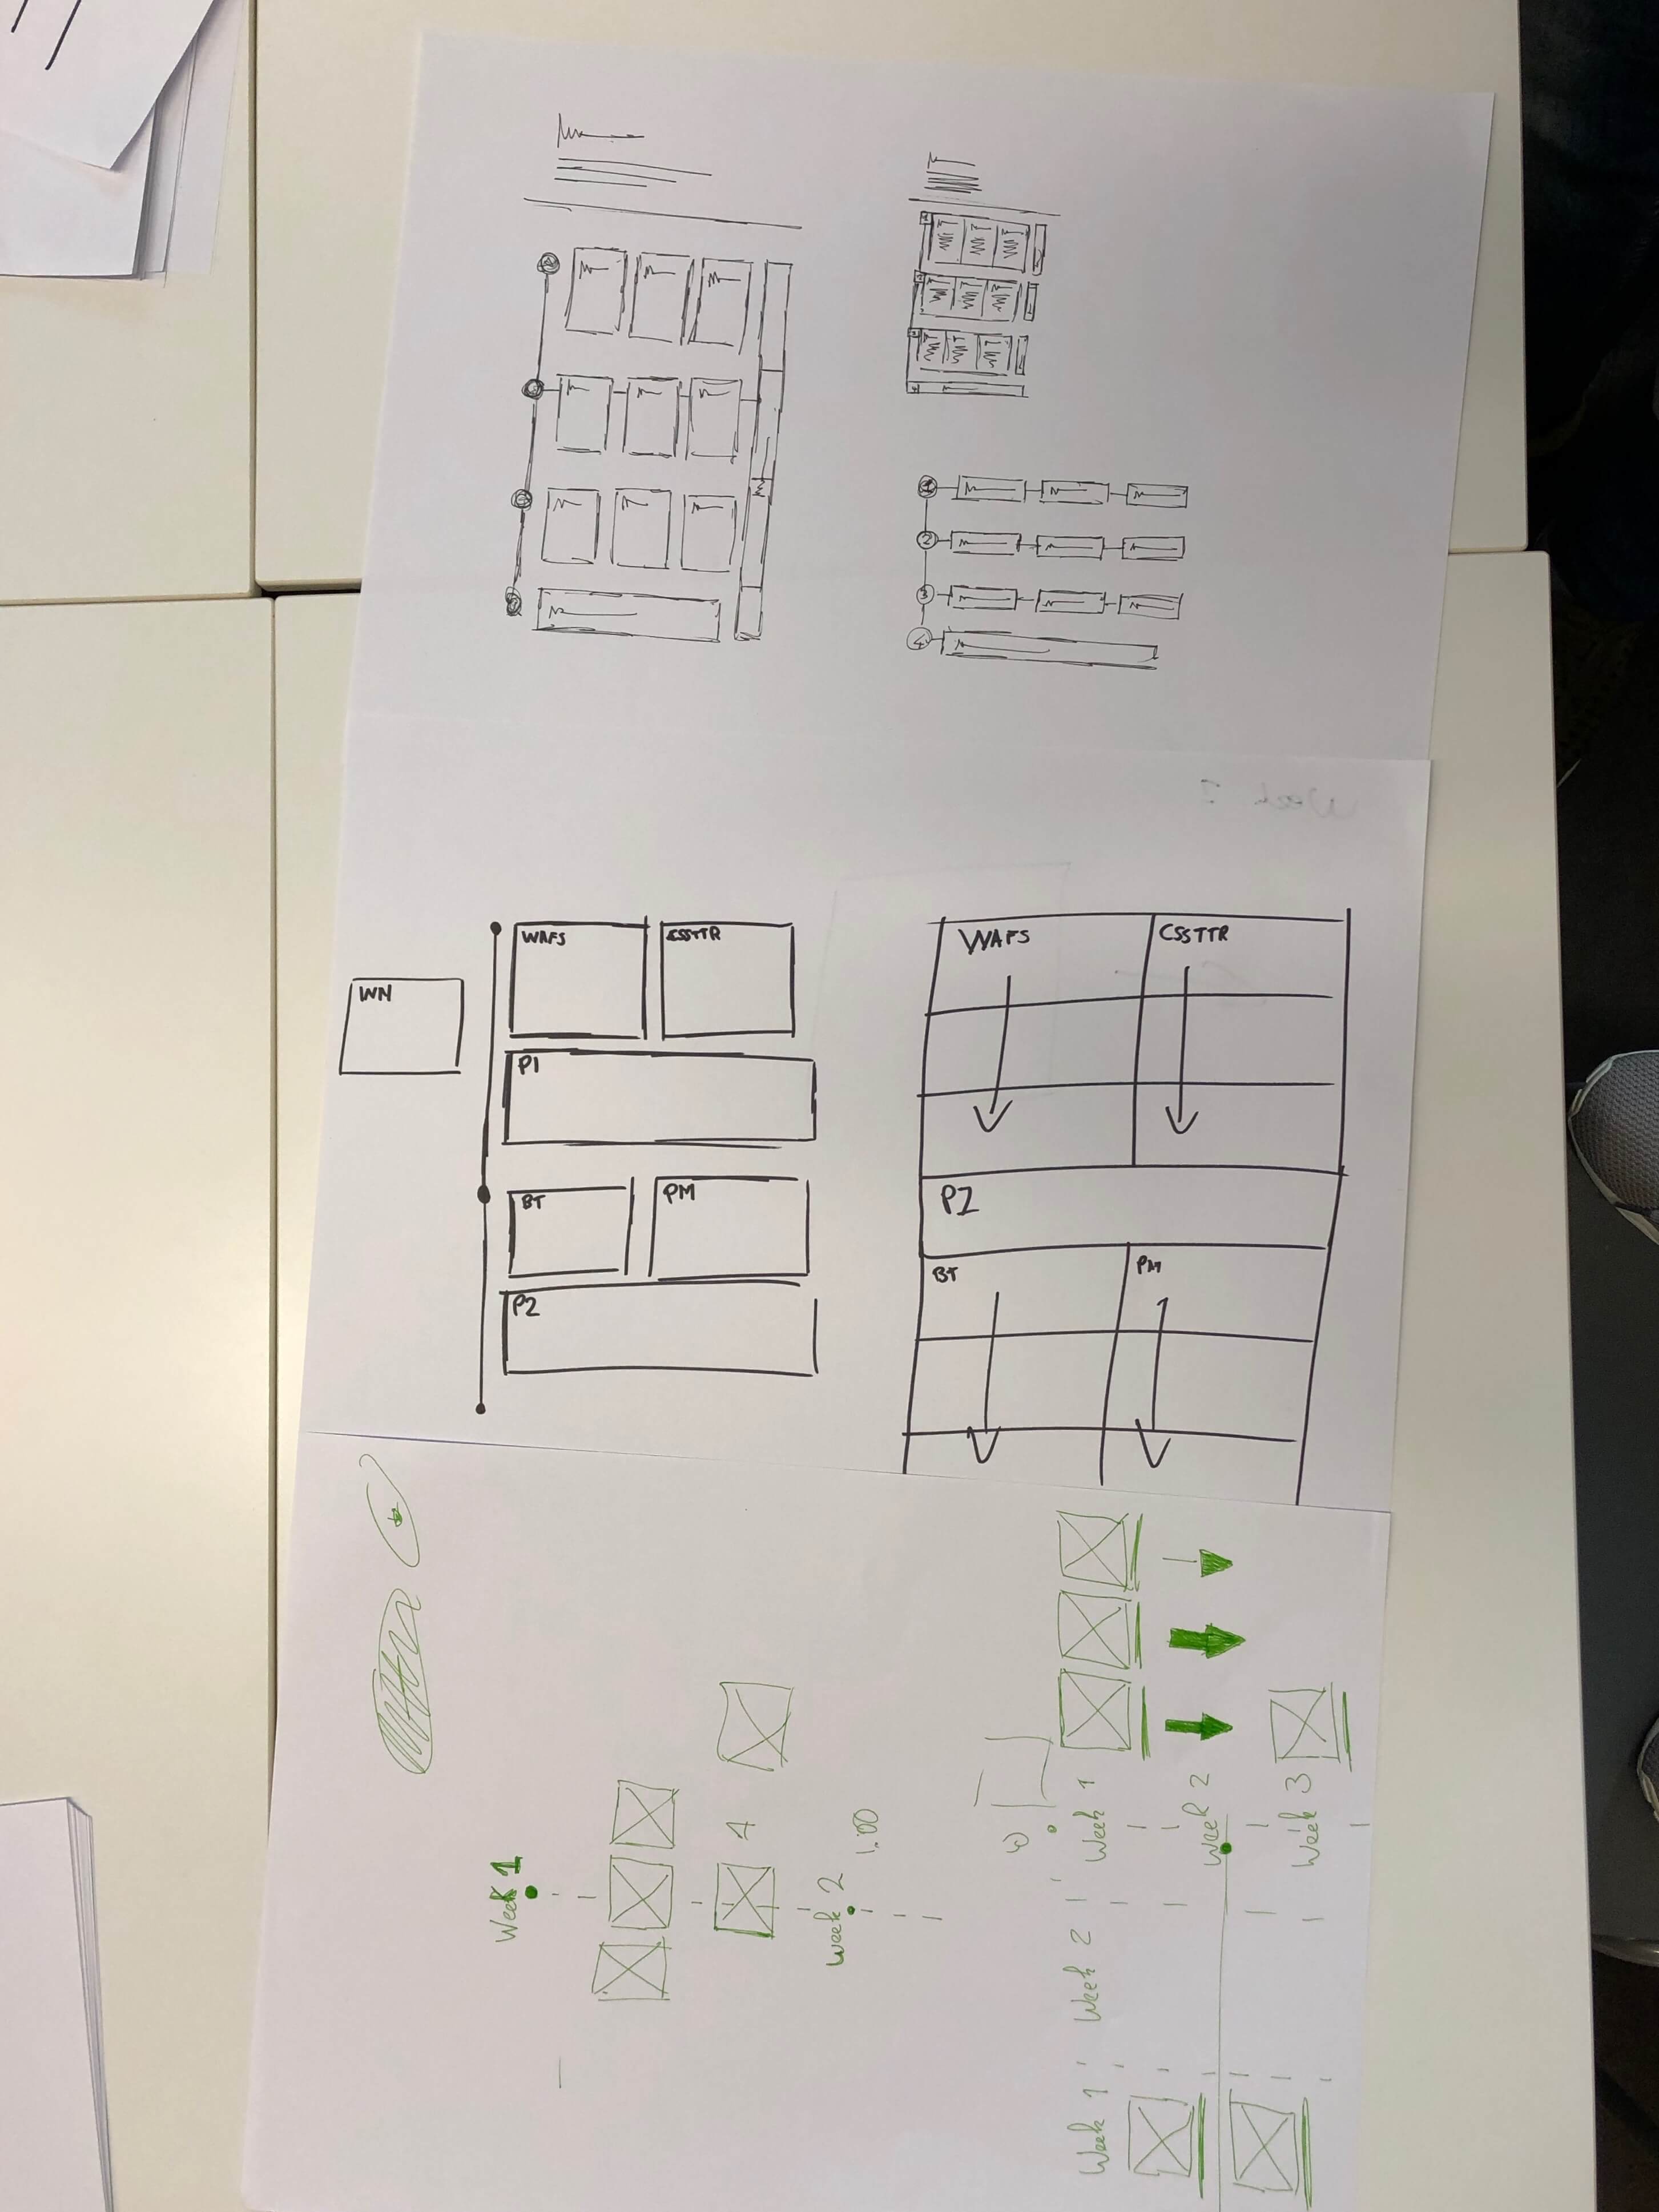 1
2
3
4
Week
WAFS
CSSTTR
WN
P1
BT
PM
P2
WAFS
CSSTTR
P1
BT
PM
Week 1
4
Week 2
1:00
Week 1
Week 2
Week 3
Week 2
Week 1